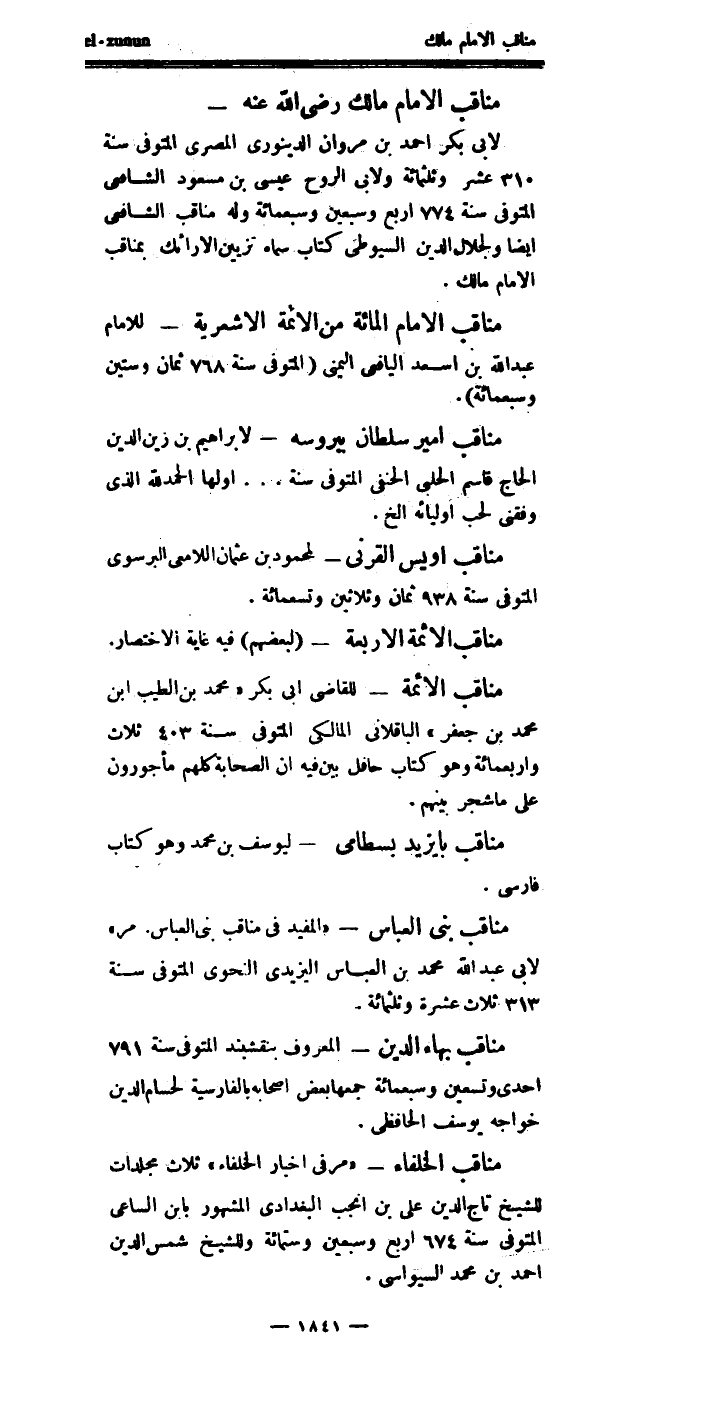 el-zunun
مناقب الامام مالك
مناقب الامام مالك رضى الله عنه —
لابى بكر احمد بن مروان الدينورى المصرى المتوفى سنة
٣١٠ عشر وثلثمائة ولابى الروح عيسى بن مسعود الشافعى
المتوفى سنة ٧٧٤ اربع وسبعين وسبعمائة وله مناقب الشافعى
ايضا ولجلال الدين السيوطى كتاب سماه تزيين الارائك بمناقب
الامام مالك .
مناقب الامام المائة من الائمة الاشعرية — للامام
عبدالله بن اسعد اليافعى اليمنى (المتوفى سنة ٧٦٨ ثمان وستين
وسبعمائة).
مناقب امير سلطان ببروسه — لابراهيم بن زين الدين
الحاج قاسم الحلبى الحنفى المتوفى سنة . . . اولها الحمدلله الذى
وفقنى لحب أوليائه الخ .
مناقب اويس القرنى — لمحمود بن عثمان اللامعى البرسوى
المتوفى سنة ٩٣٨ ثمان وثلاثين وتسعمائة .
مناقب الأئمة الاربعة — (لبعضهم) فيه غاية الاختصار.
مناقب الأئمة — للقاضى ابى بكر « محمد بن الطيب ابن
محمد بن جعفر » الباقلانى المالكى المتوفى سنة ٤٠٣ ثلاث
واربعمائة وهو كتاب حافل بين فيه ان الصحابة كلهم مأجورون
على ماشجر بينهم .
مناقب بايزيد بسطامى — ليوسف بن محمد وهو كتاب
فارسى .
مناقب بنى العباس — «المفيد فى مناقب بنى العباس. مر»
لابى عبد الله محمد بن العباس اليزيدى النحوى المتوفى سنة
٣١٣ ثلاث عشرة وثلثمائة .
مناقب بهاء الدين — المعروف بنقشبند المتوفى سنة ٧٩١
احدى وتسعين وسبعمائة جمعها بعض اصحابه بالفارسية لحسام الدين
خواجه يوسف الحافظى .
مناقب الخلفاء — «مر فى اخبار الخلفاء» ثلاث مجلدات
للشيخ تاج الدين على بن انجب البغدادى المشهور بابن الساعى
المتوفى سنة ٦٧٤ اربع وسبعين وستمائة وللشيخ شمس الدين
احمد بن محمد السيواسى .
— ١٨٤١ —